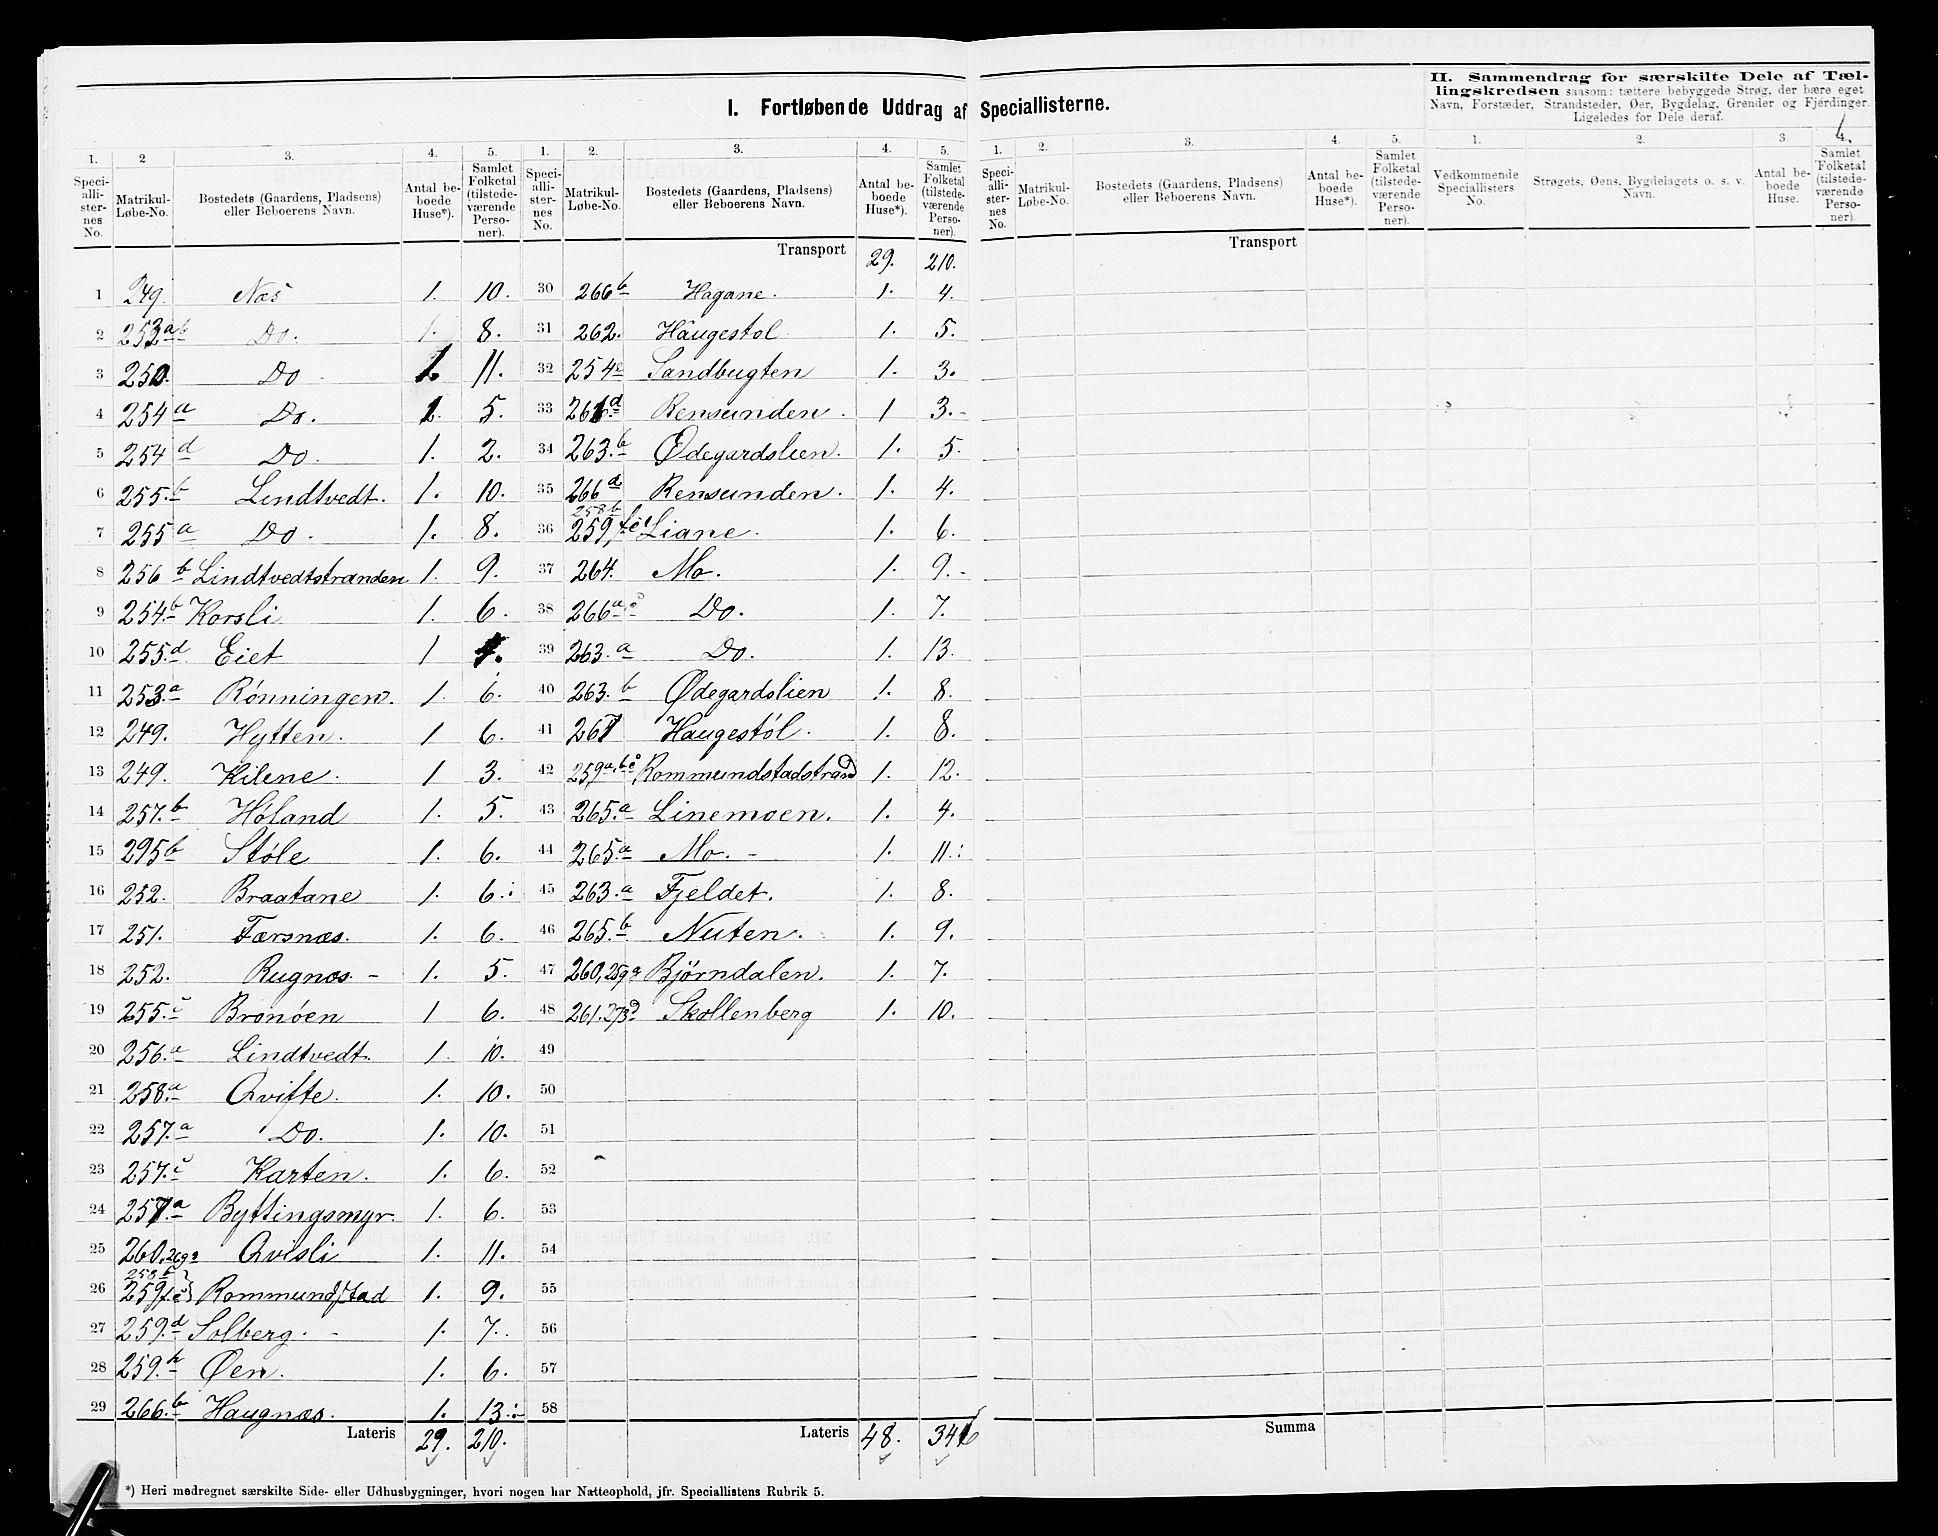 I. Fortløbende Uddrag af Speciallisterne.
II. Sammendrag for særskilte Dele af Tæl-
lingskredsen saasom: tættere bebyggede Strøg, der bære eget
Navn, Forstæder, Strandsteder, Øer, Bygdelag, Grender og Fjerdinger.
Ligeledes for Dele deraf.
1. 2 3. 4. 5. 1. 2. 3. 4. 5. 1. 2. 3. 4. 5. 1. 2. 3. 4.
Speci-alli-ster-nes No. Matrikul-Løbe-No. Bostedets (Gaardens, Pladsens) eller Beboerens Navn. Antal be-boede Huse*). Samlet Folketal (tilstede-værende Perso-ner).
Speci-alli-ster-nes No. Matrikul-Løbe-No. Bostedets (Gaardens, Pladsens) eller Beboerens Navn. Antal be-boede Huse*). Samlet Folketal (tilstede-værende Perso-ner).
Speci-alli-ster-nes No. Matrikul-Løbe-No. Bostedets (Gaardens, Pladsens) eller Beboerens Navn. Antal be-boede Huse*). Samlet Folketal (tilstede-værende Perso-ner).
Vedkommende Speciallisters No. Strøgets, Øens, Bygdelagets o. s. v. Navn. Antal be-boede Huse. Samlet Folketal (tilstede-værende Perso-ner).
1 249. Næs 1. 10.
2 253ab Do. 1. 8.
3 250. Do 1 11.
4 254a Do. 1. 5.
5 254d Do. 1. 2.
6 255.b Lindtvedt. 1. 10.
7 255a Do. 1. 8.
8 256b Lindtvedtstranden 1. 9.
9 254.b Korsli 1. 6.
10 255.d Eiet 1
11 253.a Rönningen. 1. 6.
12 249. Hytten. 1 6.
13 249. Kilene. 1 3.
14 257.b Höland 1. 5.
15 295b Støle 1. 6.
16 252. Braatane 1. 6.
17 251. Færsnæs. 1. 6.
18 252. Rugnæs. - 1. 5.
19 255.c Brönöen 1 6.
20 256.a Lindtvedt. 1. 10.
21 258.a Qvitte. 1. 10.
22 257.a Do. 1. 10.
23 257.c Karten. 1. 6.
24 257.a Byttingsmyr. 1. 6.
25 260, Qvisli 1. 11.
258b
26 259 Rommundstad 1. 9.
27 259.d Solberg. - 1. 7.
28 259.h Øen. 1. 6.
29 266.b Haugnæs. 1. 13.
Lateris 29. 210.
Transport 29. 210.
30 266b Hagane. 1. 4.
31 262. Haugestol 1. 5.
32 254e Sandbugten 1. 3.
33 Rensunden. 1 3.-
34 263.b Ødegardslien. 1. 5.
35 266d Rensunden. 1. 4.
258b
36 259 Liane. 1. 6.
37 264. Mo. 1. 9.-
38 266a,c Do. 1. 7.
39 263.a Do. 1. 13.
40 263.b Ødegardslien 1. 8.
41 267 Haugestöl. 1. 8.
42 259a,b,c Rommundstadstrand 1. 12.
43 265.a Linemoen. 1. 4.
44 265.a Mo. - 1. 11.
45 263.a Fjeldet. 1. 8.
46 265.b Nuten. 1. 9.
47 260, 259 Björndalen. 1. 7.
48 261. 273 Skollenberg 1. 10.
49
50
51
52
53
54
55
56
57
58
Lateris 48. 346
Transport
Summa
*) Heri medregnet særskilte Side- eller Udhusbygninger, hvori nogen har Natteophold, jfr. Speciallistens Rubrik 5.